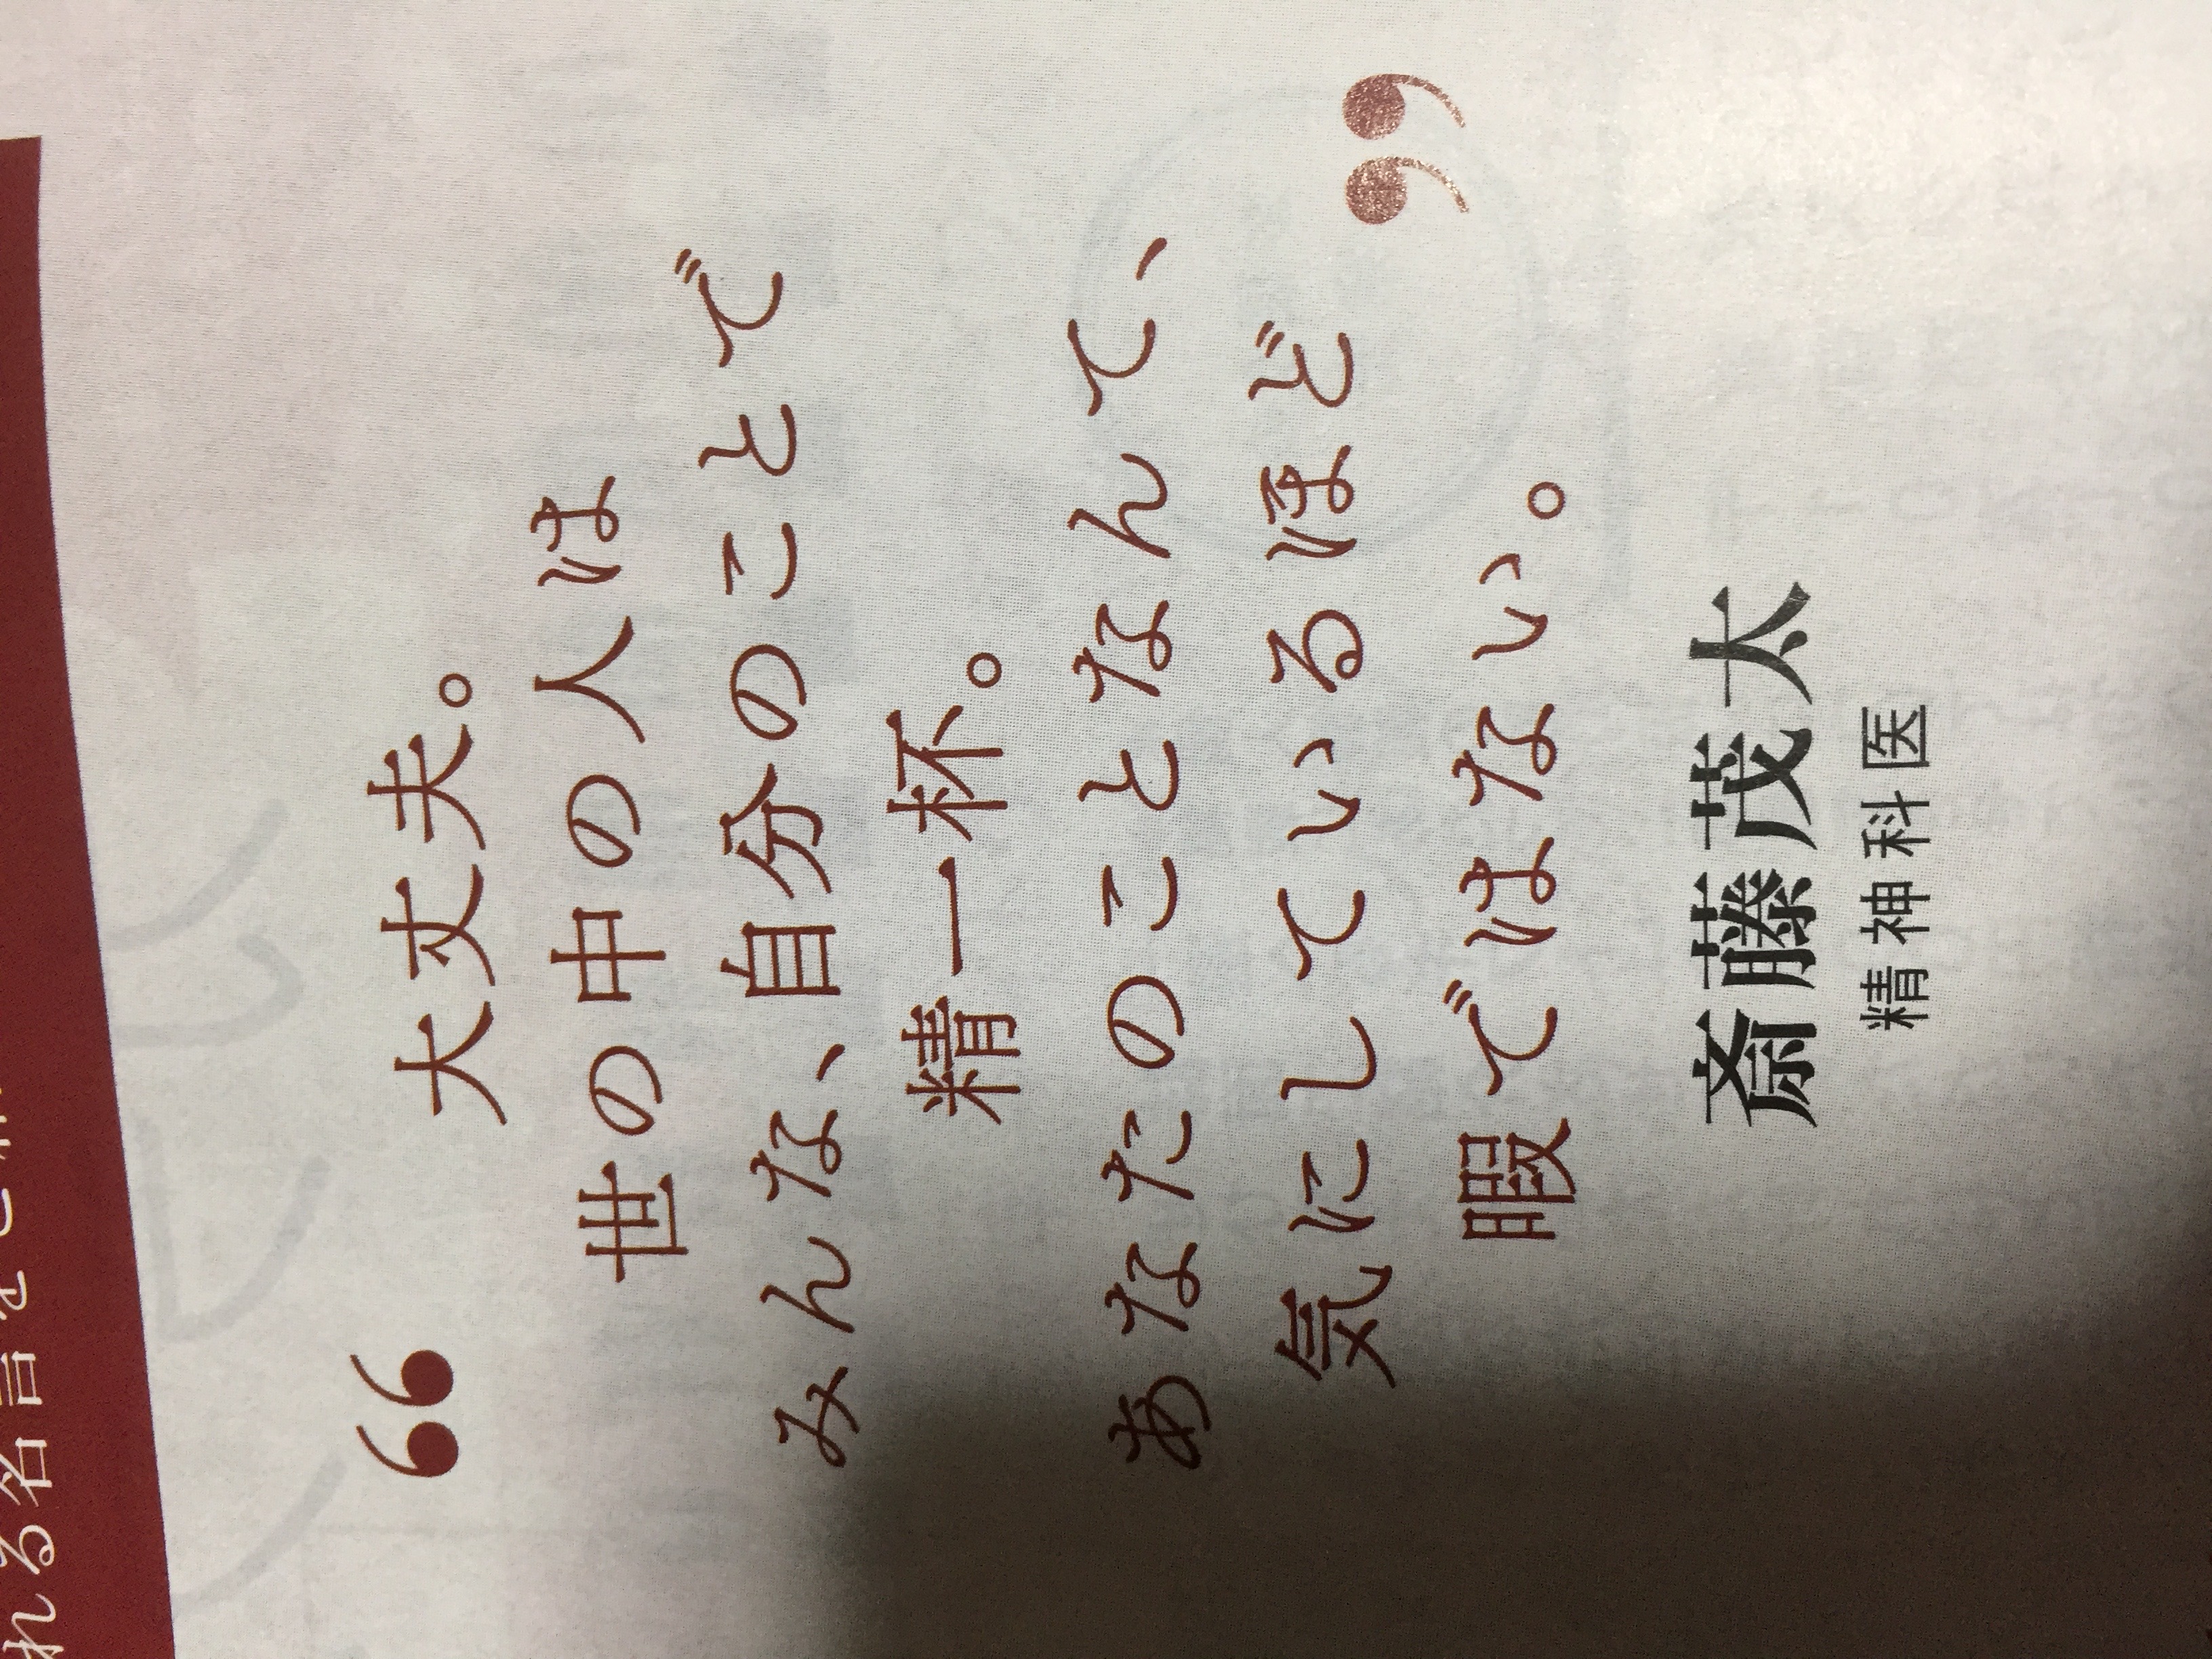 れる名言を
“
大丈夫。
世の中の人は
みんな、自分のことで
精一杯。
あなたのことなんて、
気にしているほど
暇ではない。
”
斎藤茂太
精神科医